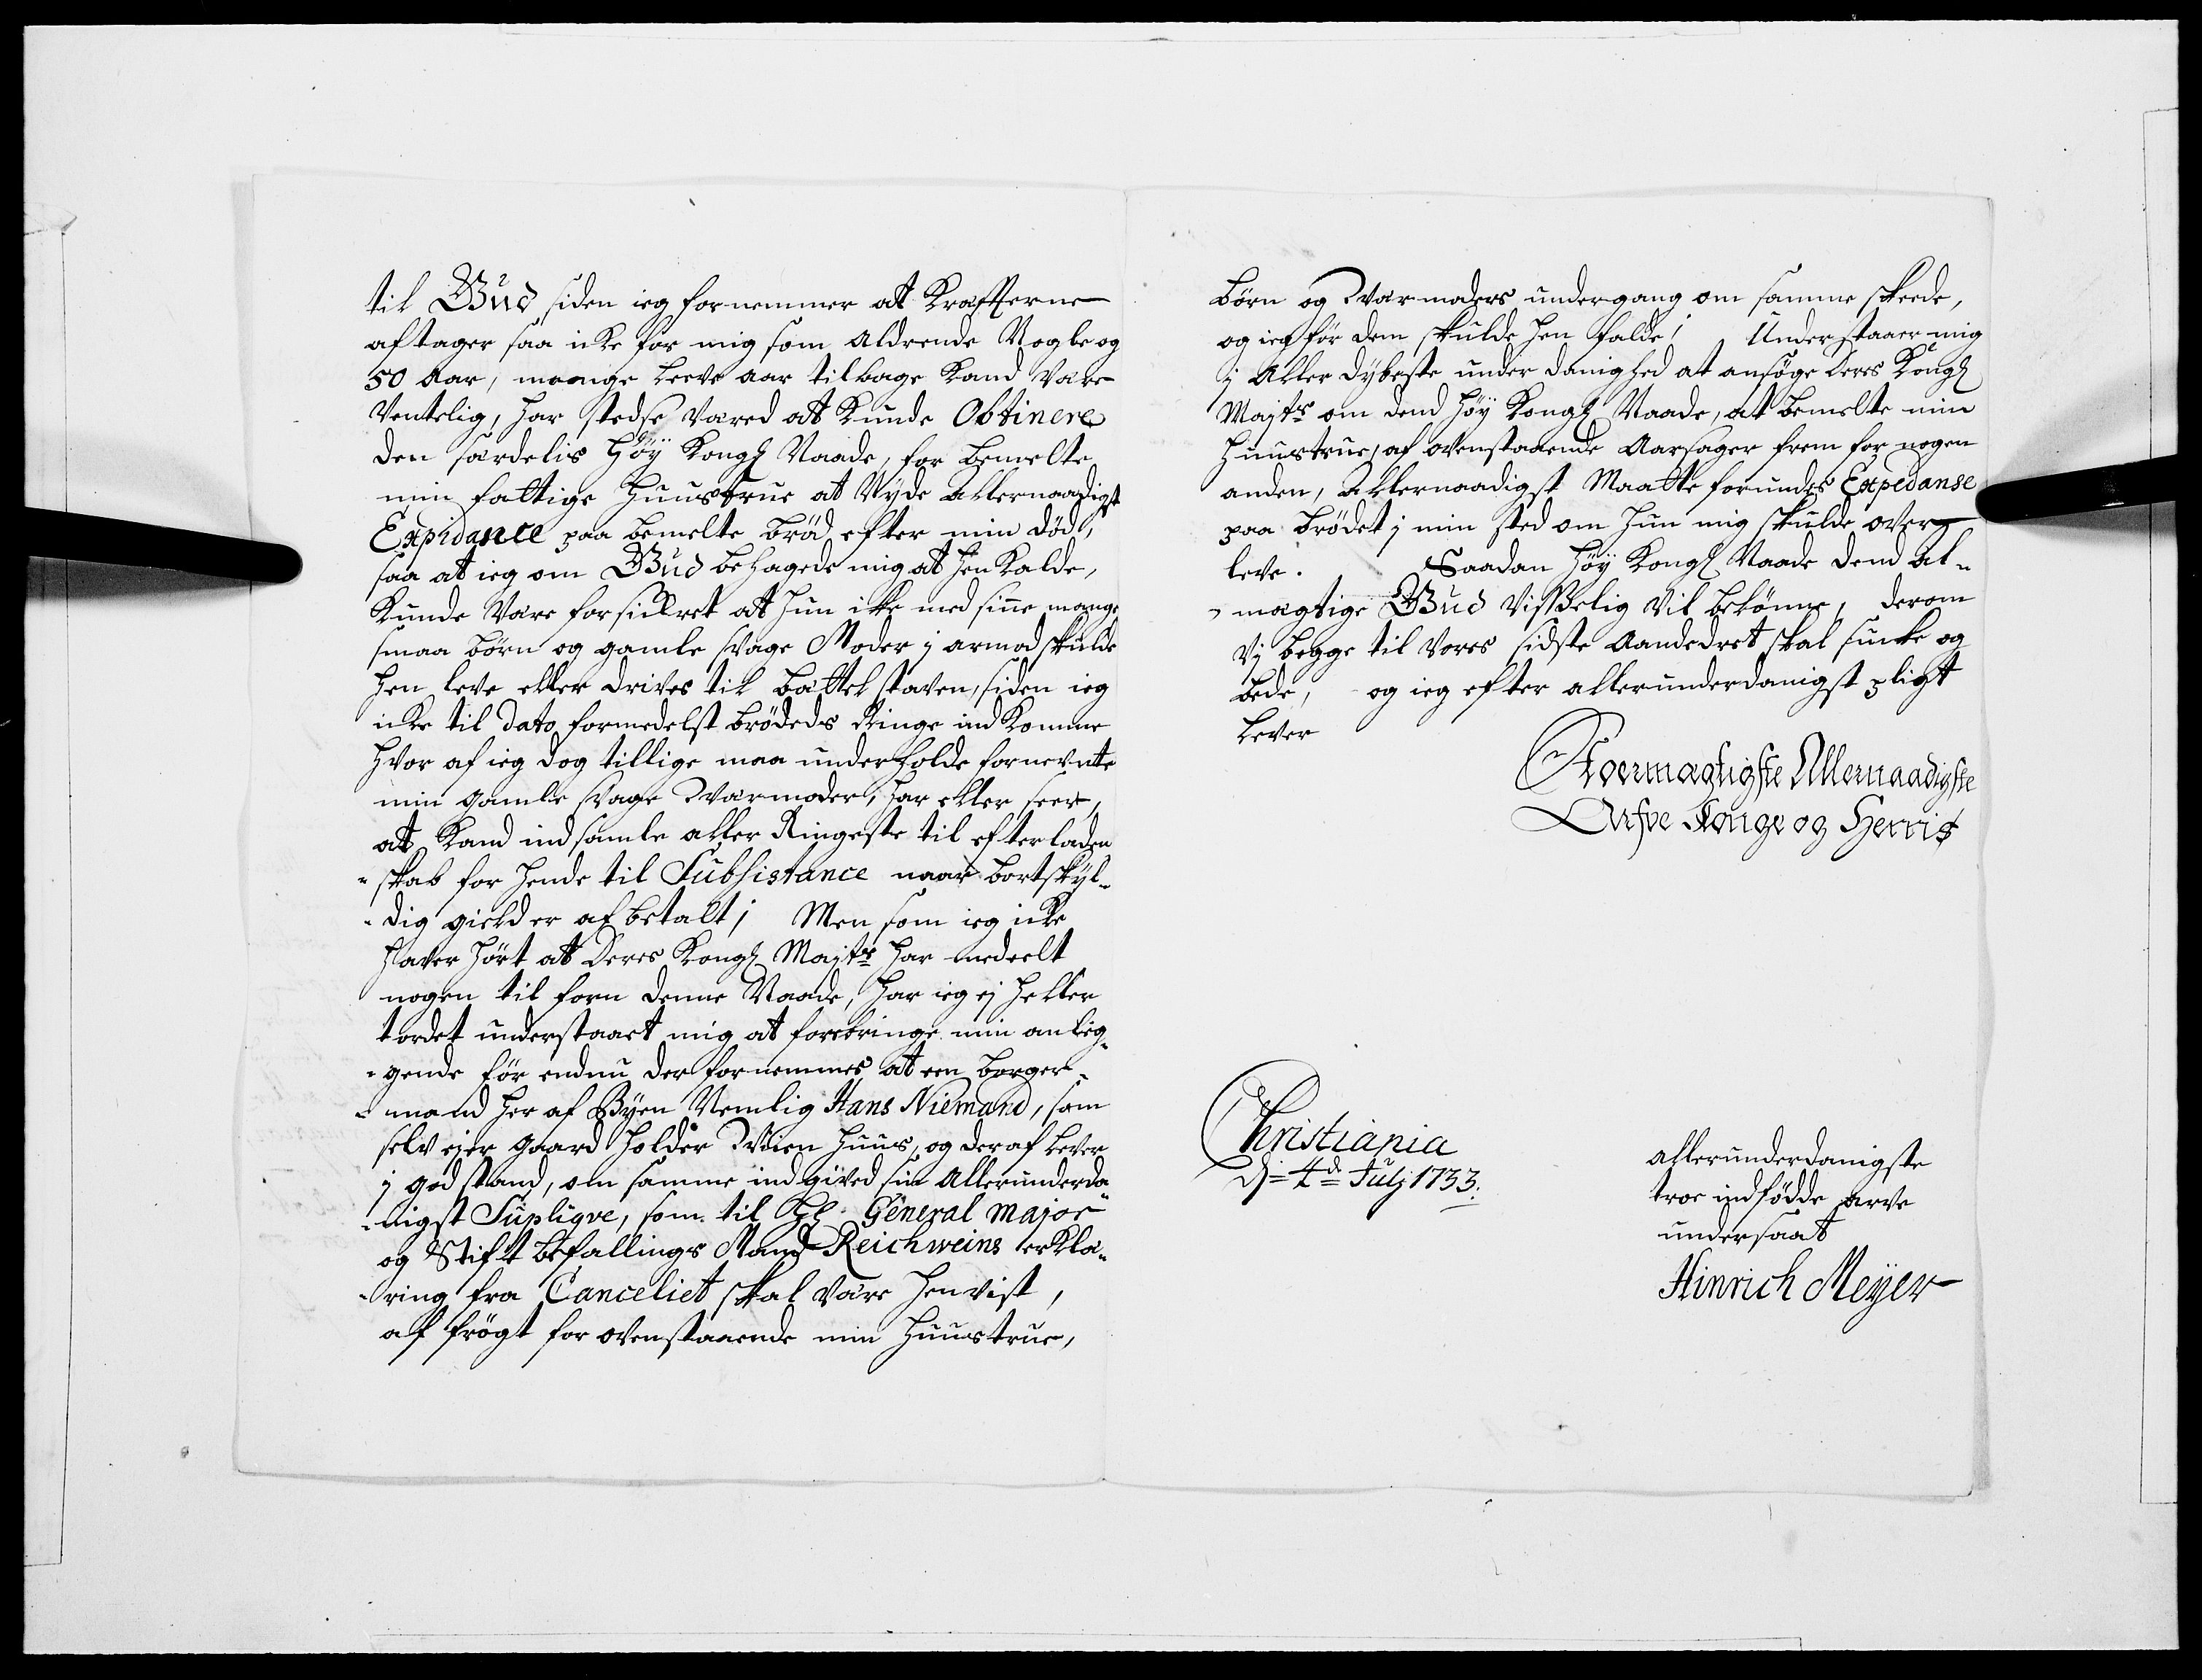 til Gud siden ieg fornemmer at Kræffterne
aftager saa icke for mig som aldrende Nogle og
50 Aar, mange leeve aar tilbage Kand være
Ventelig, har stedse vared at Kunde Obtinere
den særdelis Höÿ Kongl Naade, for bemelte
min fattige Huustrue at Nÿde Allernaadigst
Expidance paa bemelte bröd efter min död,
saa at ieg om Gud behagede mig at hen kalde,
Kunde være forsickret at hun icke med sine mange
smaa börn og gamle svage Moder j armod skulde
hen leve eller drives til bættel staven, siden ieg
icke til dato formedelst brödeds Ringe ind Komme
hvor af ieg dog tillige maa underholde fornevnte
min gamle svage værmoder, har eller seer,
at Kand indsamle aller Ringeste til efterladen
-skab for hende til Subsistance naar bortskÿl-
-dig gield er af betalt; Men som ieg icke
haver hört at Deres Kongl Majts har medeelt
nogen til forn denne Naade, har ieg ej heller
tordet understaaet mig at forebringe min anlig-
-gende för endnu der fornemmes at een borger-
-mand her af Bÿen Nemlig Hans Niemand, som
selv ejer gaard holder Viin huus, og deraf lever
j god stand, om samme indgived sin Allerunderda-
-nigst Supliqve, som til Hl General Major
og Stift befallings Mand Reichweins erklæ-
-ring fra Canceliet skal være henvist,
af frögt for ovenstaaende min huustrue,
börn og værmoders undergang om samme skeede,
og ieg för dem skulde hen falde; Understaaer mig
j Aller dÿbeste under danighed at ansöge Deres Kongl
Majts om dend höÿ Kongl Naade, at bemelte min
huustrue, af ovenstaaende Aarsager frem for nogen
anden, Allernaadigst Maatte forundes Expedanse
paa brödet j min sted om hun mig skulde over-
leve. Saadan Höÿ Kongl Naade dend al-
-mægtige Gud visselig vil belönne, derom
vj begge til vores sidste aandedret skal sucke og
bede, og ieg efter allerunderdanigst pligt
lever
Stormægtigste Allernaadigste
Arfve Konge og Herris
Christiania
d= 4de Julj 1733.
allerunderdanigste
troe indfödde arve
undersaat
Hinrich Meÿer